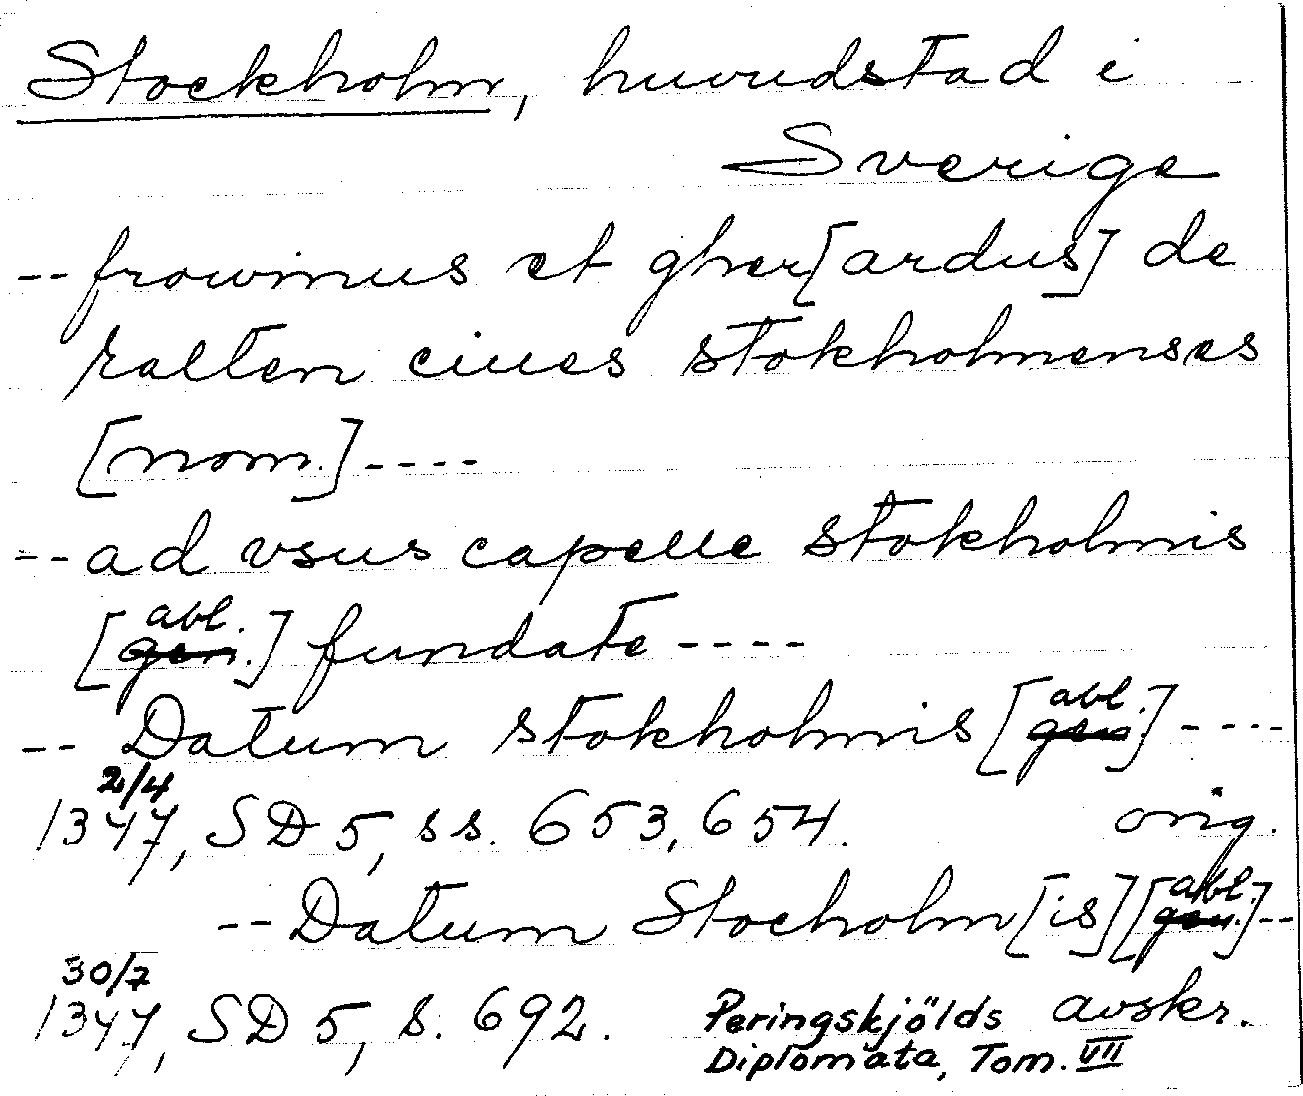 Stockholm, huvudstad i
Sverige
-- frowinus et gher[ardus] de
ralten ciues stokholmenses
[nom.] ----
-- ad vsus capelle stokholmis
[abl. gen.] fundate ----
-- Datum stokholmis [abl. gen.] ----
2/4
1347, SD 5, ss. 653, 654. orig.
-- Datum Stocholm[is] [abl. gen.] --
30/7
1347, SD 5, s. 692. Peringskjölds avskr.
Diplomata, Tom. VII